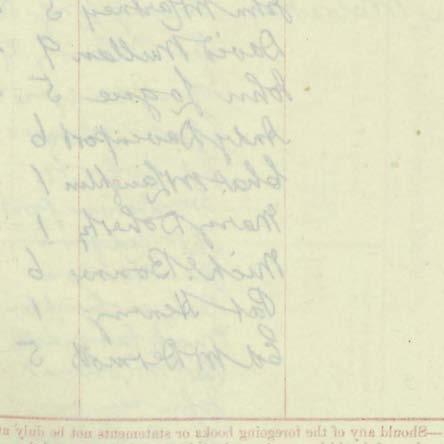 John McCartney 5
David Mullan 9
John Logue 5
Andy Davenport 6
Chas. McLaughlin 1
Mary Doherty 1
Michl. Bonner 6
Pat Henry 1
Ed McDermott 5
—Should any of the foregoing books or statements not be duly